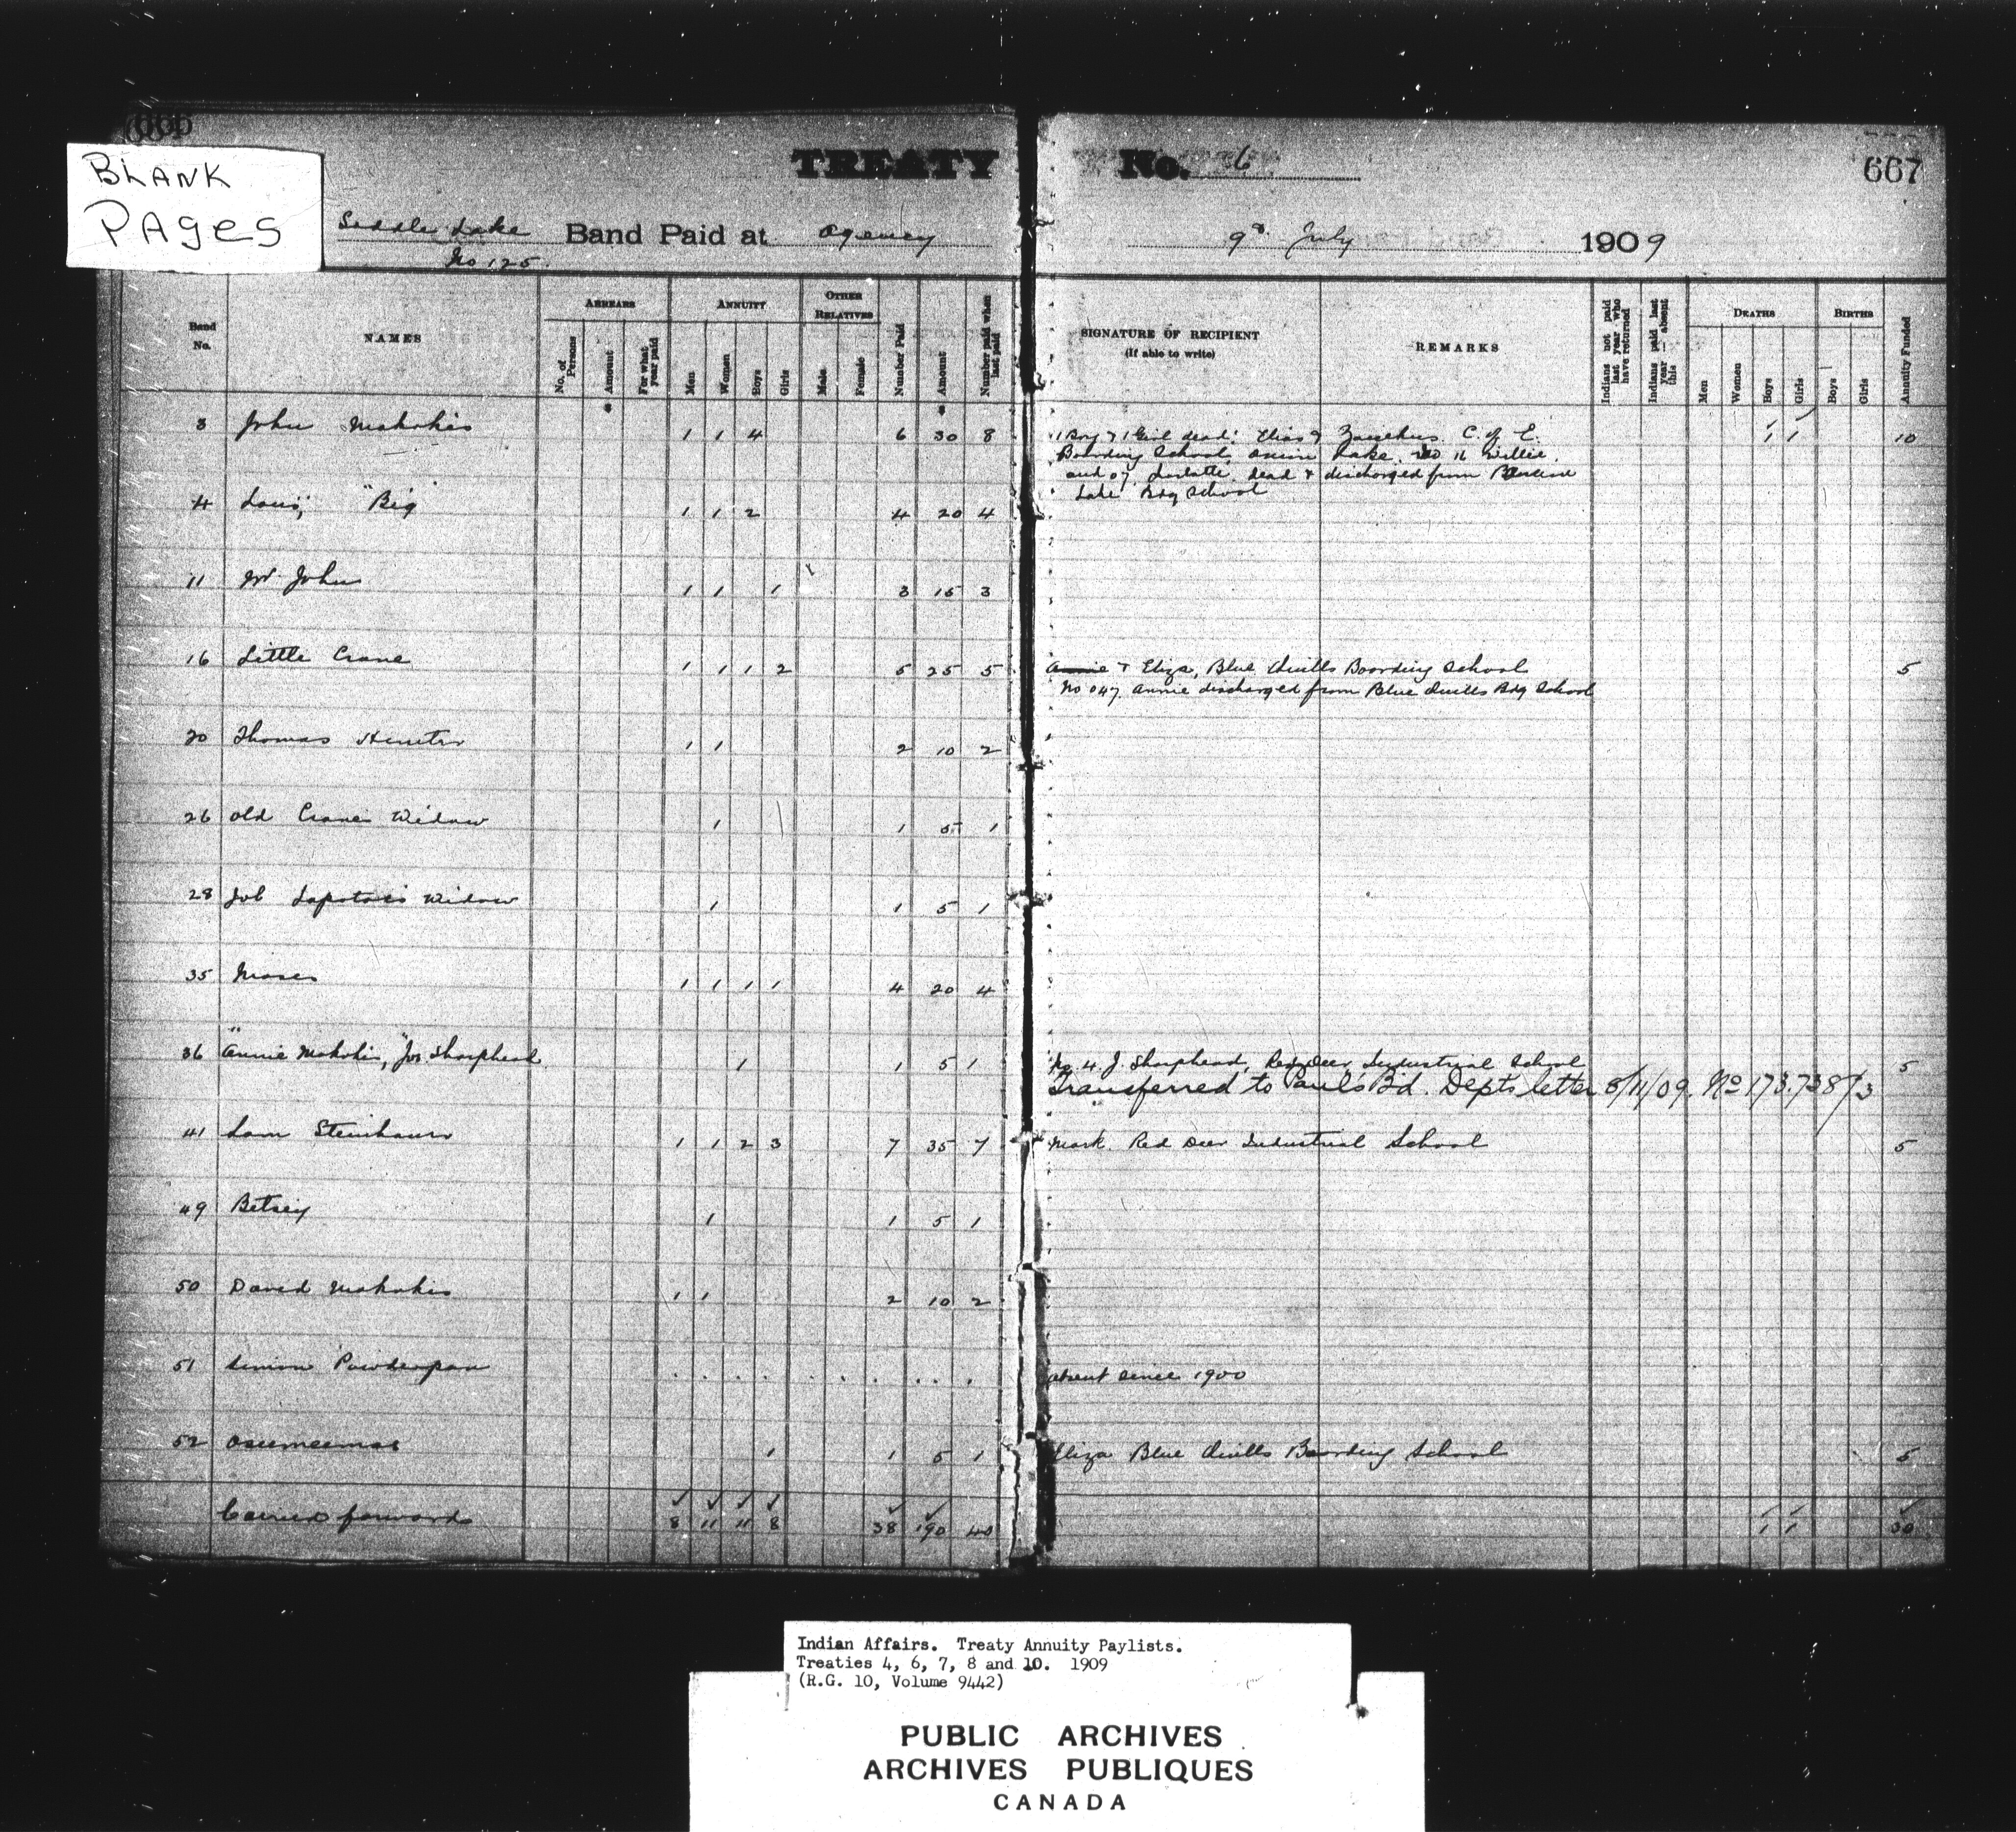 666
BLANK
PAges
TREATY No. 6
667
Saddle Lake Band Paid at Agency 9th July 1909
No 125.
Band No.
NAMES
ARREARS
No. of Persons
Amount
For what year paid
ANNUITY
Men
Women
Boys
Girls
OTHER RELATIVES
Male
Female
Number Paid
Amount
Number paid when last paid
SIGNATURE OF RECIPIENT
(If able to write)
REMARKS
Indians not paid last year who have returned
Indians paid last year absent this
DEATHS
Men
Women
Boys
Girls
BIRTHS
Boys
Girls
Annuity Funded
8 John Makokis 1 1 4 6 30 8 1 Boy & 1 Girl dead. Elias & C. of E. 1 1 10
Boarding School, Onion Lake. No 16 Willie.
and 07 dead & discharged from
Lake Bdg School
4 Louis, "Big" 1 1 2 4 20 4
11 Wm John 1 1 1 3 15 3
16 Little Crane 1 1 1 2 5 25 5 Annie & Eliza, Blue Quills Boarding School 5
No 047 Annie discharged from Blue Quills Bdg School
20 Thomas Hunter 1 1 2 10 2
26 Old Crane's Widow 1 1 5 1
28 Job Lapotac's Widow 1 1 5 1
35 Moses 1 1 1 1 4 20 4
36 Annie Makokis, "Jos. Sharphead 1 1 5 1 No. 4. J. Sharphead, Red Deer Industrial School 5
Transferred to Pauls Bd. Depts letter 5/11/09. No 173.738/3
41 Sam Steinhauer 1 1 2 3 7 35 7 Mark. Red Deer Industrial School 5
49 Betsey 1 1 5 1
50 David Makokis 1 1 2 10 2
51 Simon Powderpan absent since 1900
52 Oseemeemas 1 1 5 1 Eliza Blue Quills Boarding School 5
Carried forward 8 11 11 8 38 190 40 1 1 30
Indian Affairs. Treaty Annuity Paylists.
Treaties 4, 6, 7, 8 and 10. 1909
(R.G. 10, Volume 9442)
PUBLIC ARCHIVES
ARCHIVES PUBLIQUES
CANADA